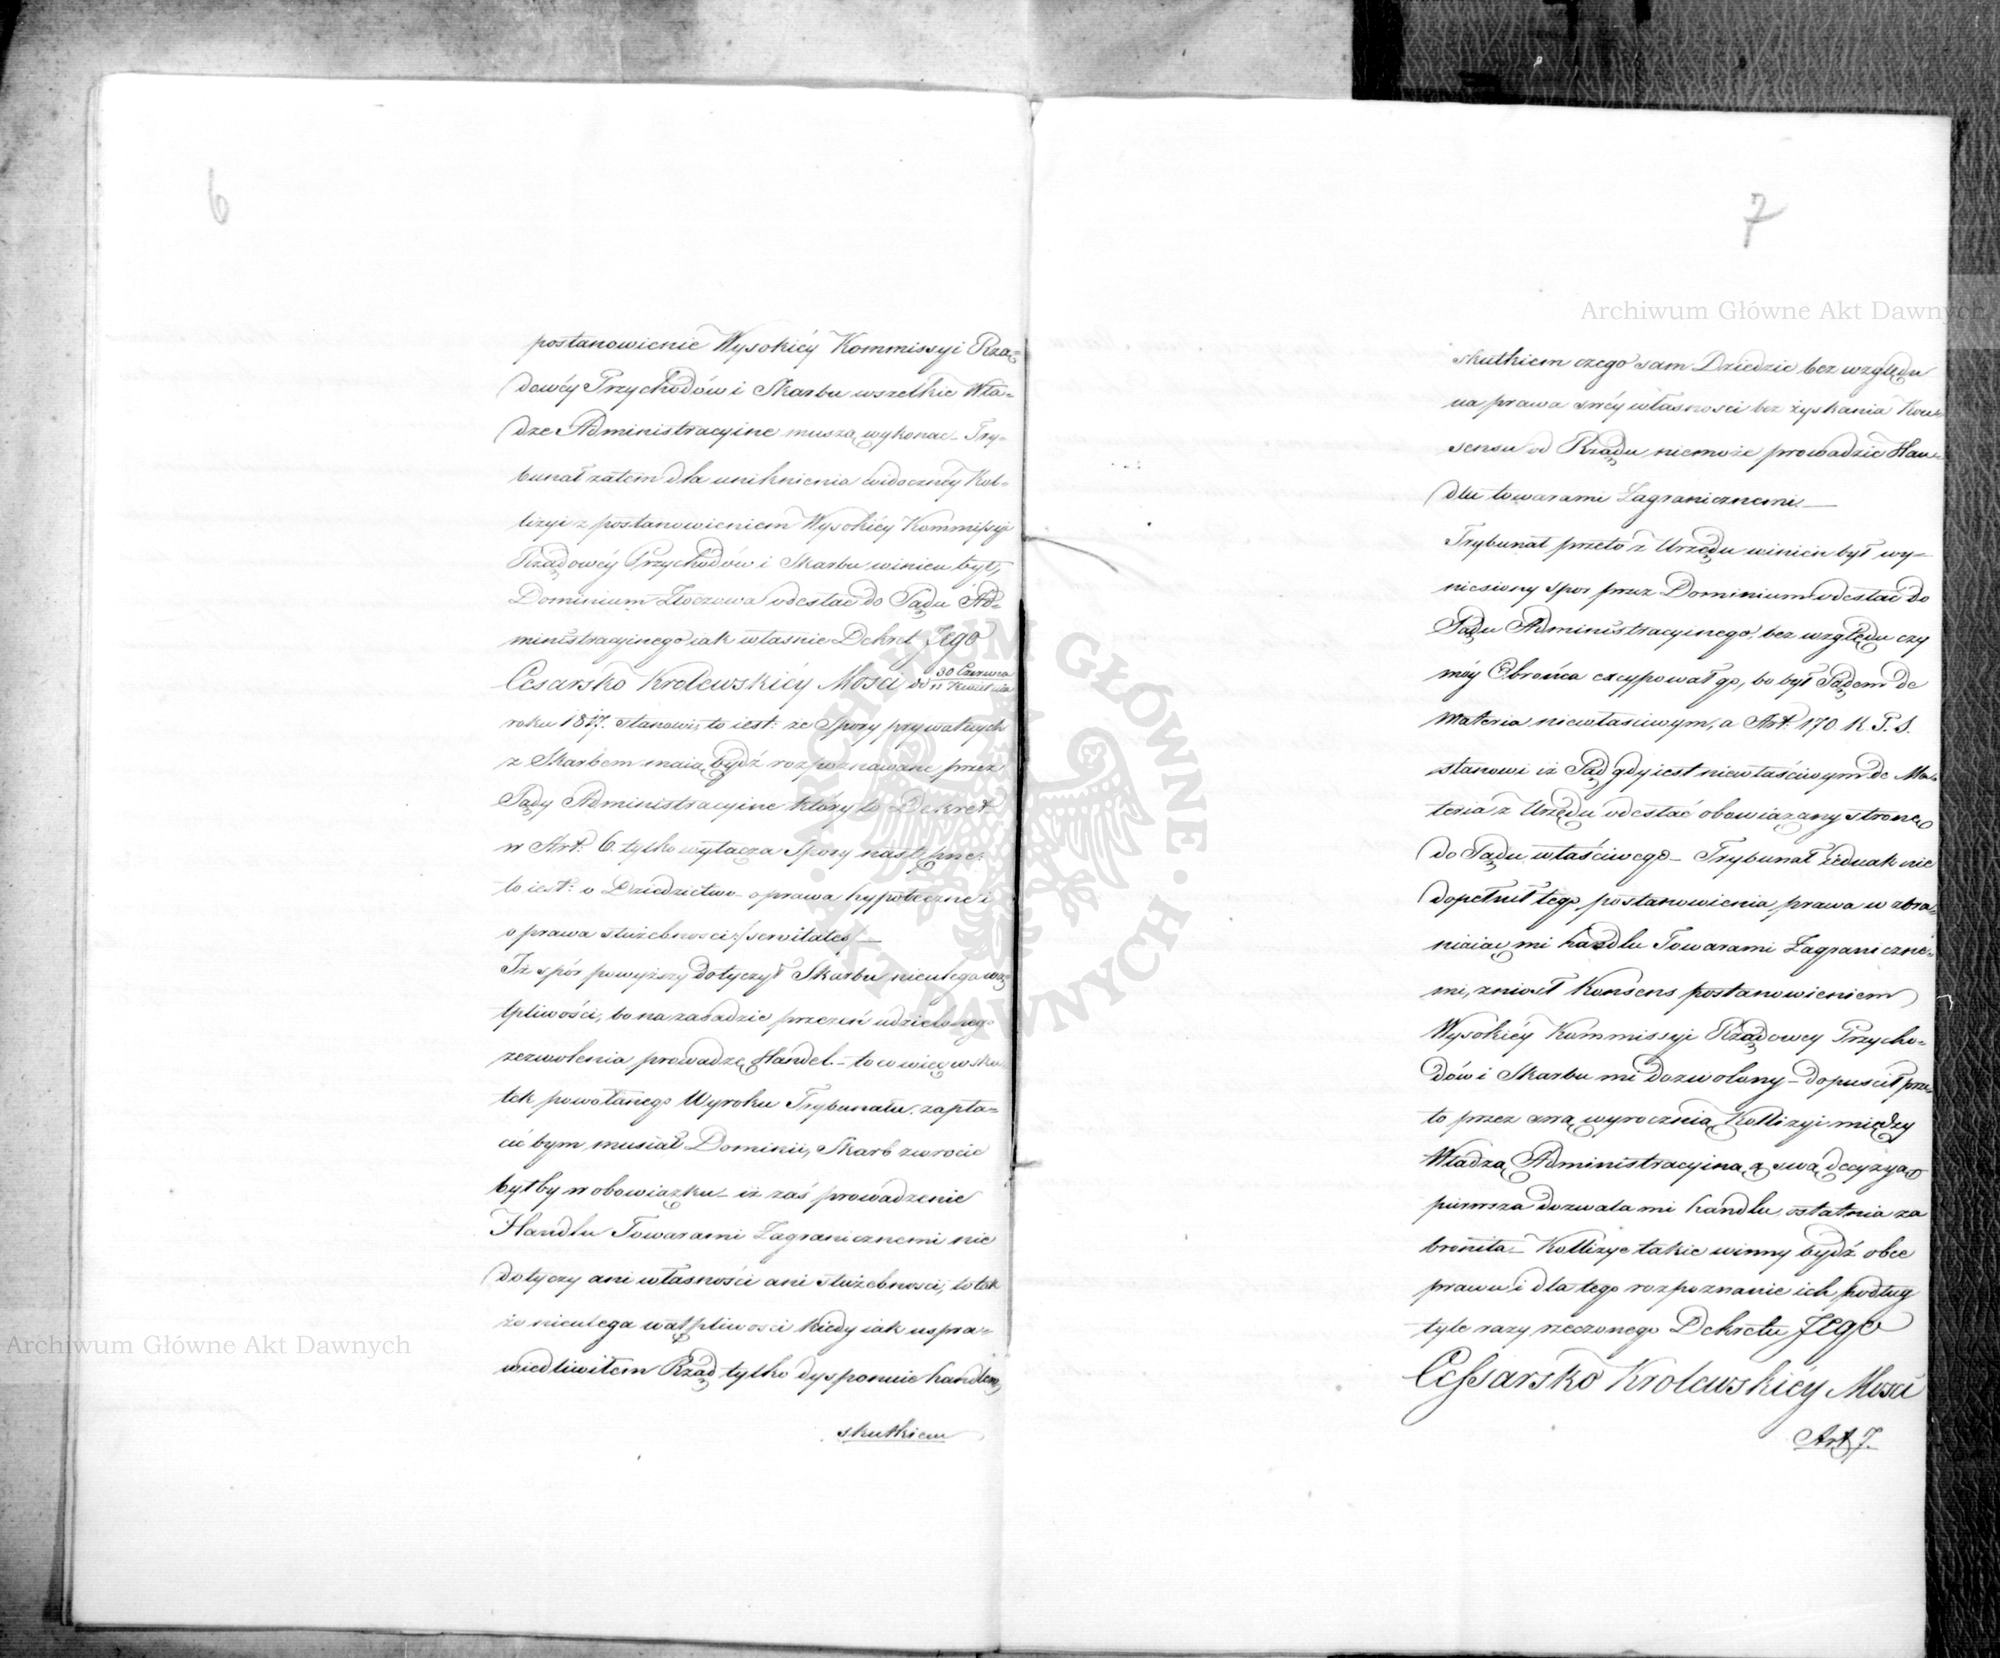 6
postanowienie Wysokiéy Kommissyi Rzą=
dowéy Przychodów i Skarbu wszelkie Wła=
dze Administracyine muszą wykonac_ Try=
bunał zatem dla uniknienia widocznéy Kol=
lizyi z postanowieniem Wysokiéy Kommissyi
Rządowéy Przychodów i Skarbu winien był,
Dominium Złoczowa odesłać do Sądu Ad=
ministracyinego iak właśnie Dekret Jego
Cesarsko Krolewskiéy Mosci dd 30 Czerwca
11 Kwietnia
roku 1817. stanowi, to iest: że Spory prywatnych
z Skarbem maią bydź rozpoznawane przez
Sądy Administracyine który to Dekret
w Art: 6. tylko wyłącza Spory następne:
to iest: o Dziedzictwo_ o prawa hypoteczne i
o prawa służebnosci:/servitutes/_
Iż spór powyższy dotyczył Skarbu, nieulega wą=
tpliwości, bo na zasadzie przezeń udzielonego
zezwolenia prowadzę Handel_ to co więc w sku
tek powołanego Wyroku Trybunału zapła=
cić bym musiał Dominii, Skarb zwrocic
byłby w obowiązku_ iż zaś prowadzenie
Handlu Towarami Zagranicznemi nie
dotyczy ani własności ani służebnosci, to tak
że nieulega watpliwosci kiedy iak uspra=
wiedliwiłem Rząd tylko dysponuie handlem,
skutkiem
7
skutkiem czego sam Dziedzic bez względu
na prawa swéy własnosci bez zyskania Kon=
sensu od Rządu niemoże prowadzic Han=
dlu towarami Zagranicznemi_
Trybunał przeto z Urzędu winien był wy=
niesiony spor przez Dominium odesłac do
Sądu Administracyinego, bez względu czy
móy Obrońca excypował go, bo był Sądem de
Materia niewłasciwym, a Art: 170. K. P. S.
stanowi iż Sąd gdy iest niewłaściwym de Ma=
teria z Urzędu odesłać obowiązany stronę
do Sądu właściwego_ Trybunał iednak nie
dopełnił tego postanowienia prawa w zbra=
niaiąc mi handlu Towarami Zagraniczne=
mi, zniosł Konsens postanowieniem
Wysokiéy Kommissyi Rządowey Przycho=
dów i Skarbu mi dozwolony_ dopuscił prze=
to przez swą wyrocznią Kollizyi między
Władzą Administracyiną a swą decyzyą
pierwsza dozwala mi handlu, ostatnia za
broniła_ Kollizye takie winny bydź obce
prawu i dla tego rozpoznanie ich podług
tyle razy rzeczonego Dekretu Jego
Cessarsko Krolewskiéy Mosci
Art 7.
Archiwum Główne Akt Dawnych
Archiwum Główne Akt Dawnych
ARCHIWUM GŁÓWNE · AKT DAWNYCH ·